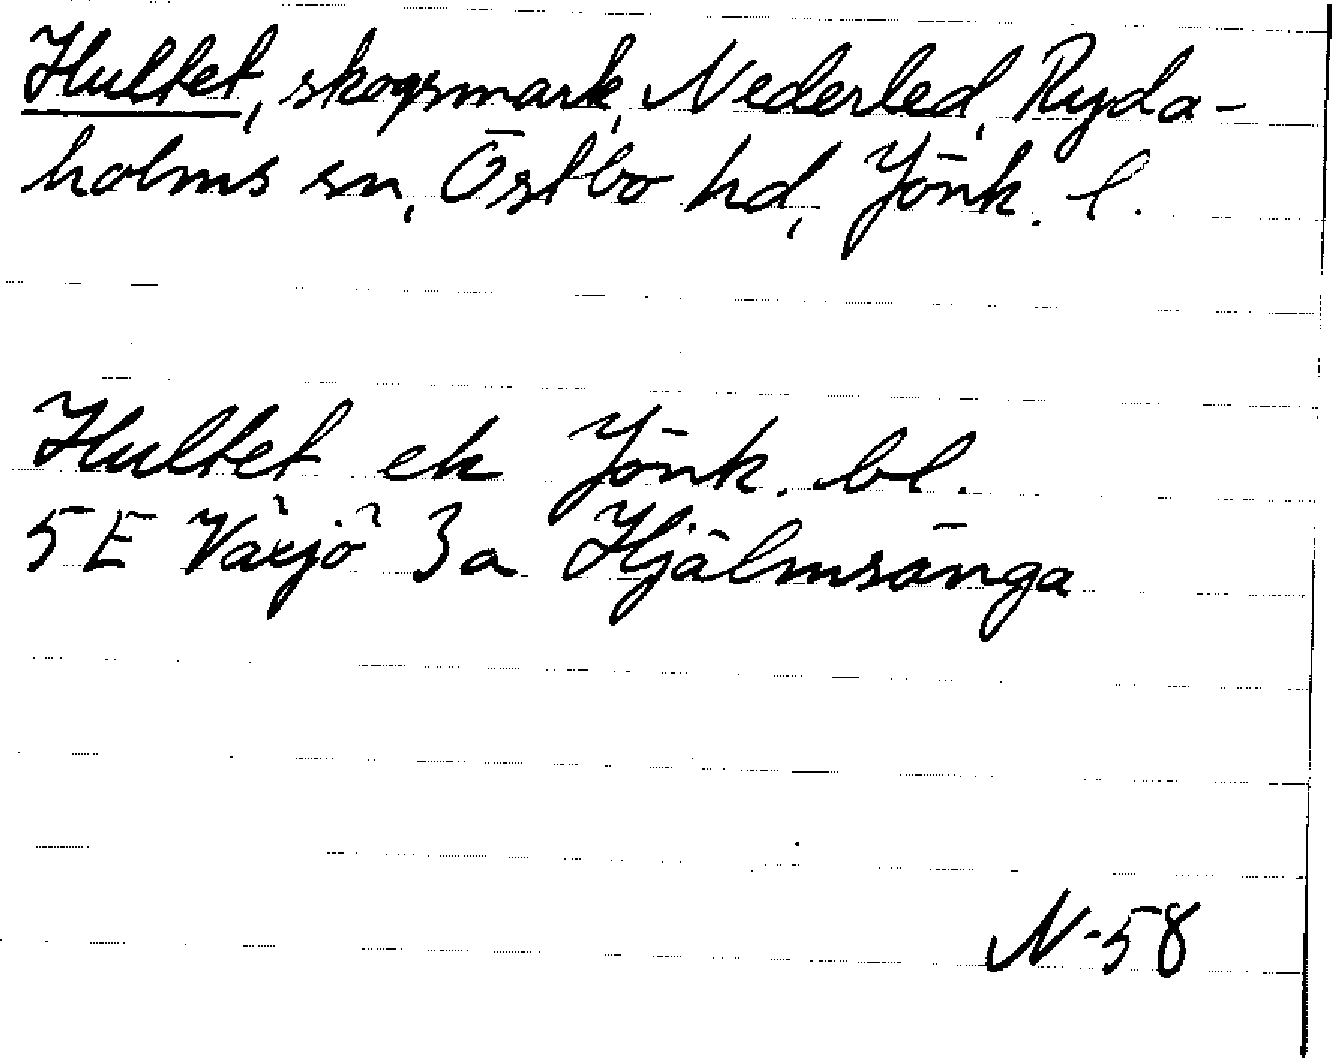 Hultet, skogsmark, Nederled, Ryda-
holms sn, Östbo hd, Jönk. l.
Hultet ek Jönk. bl.
5E Växjö 3a Hjälmsänga
N-58